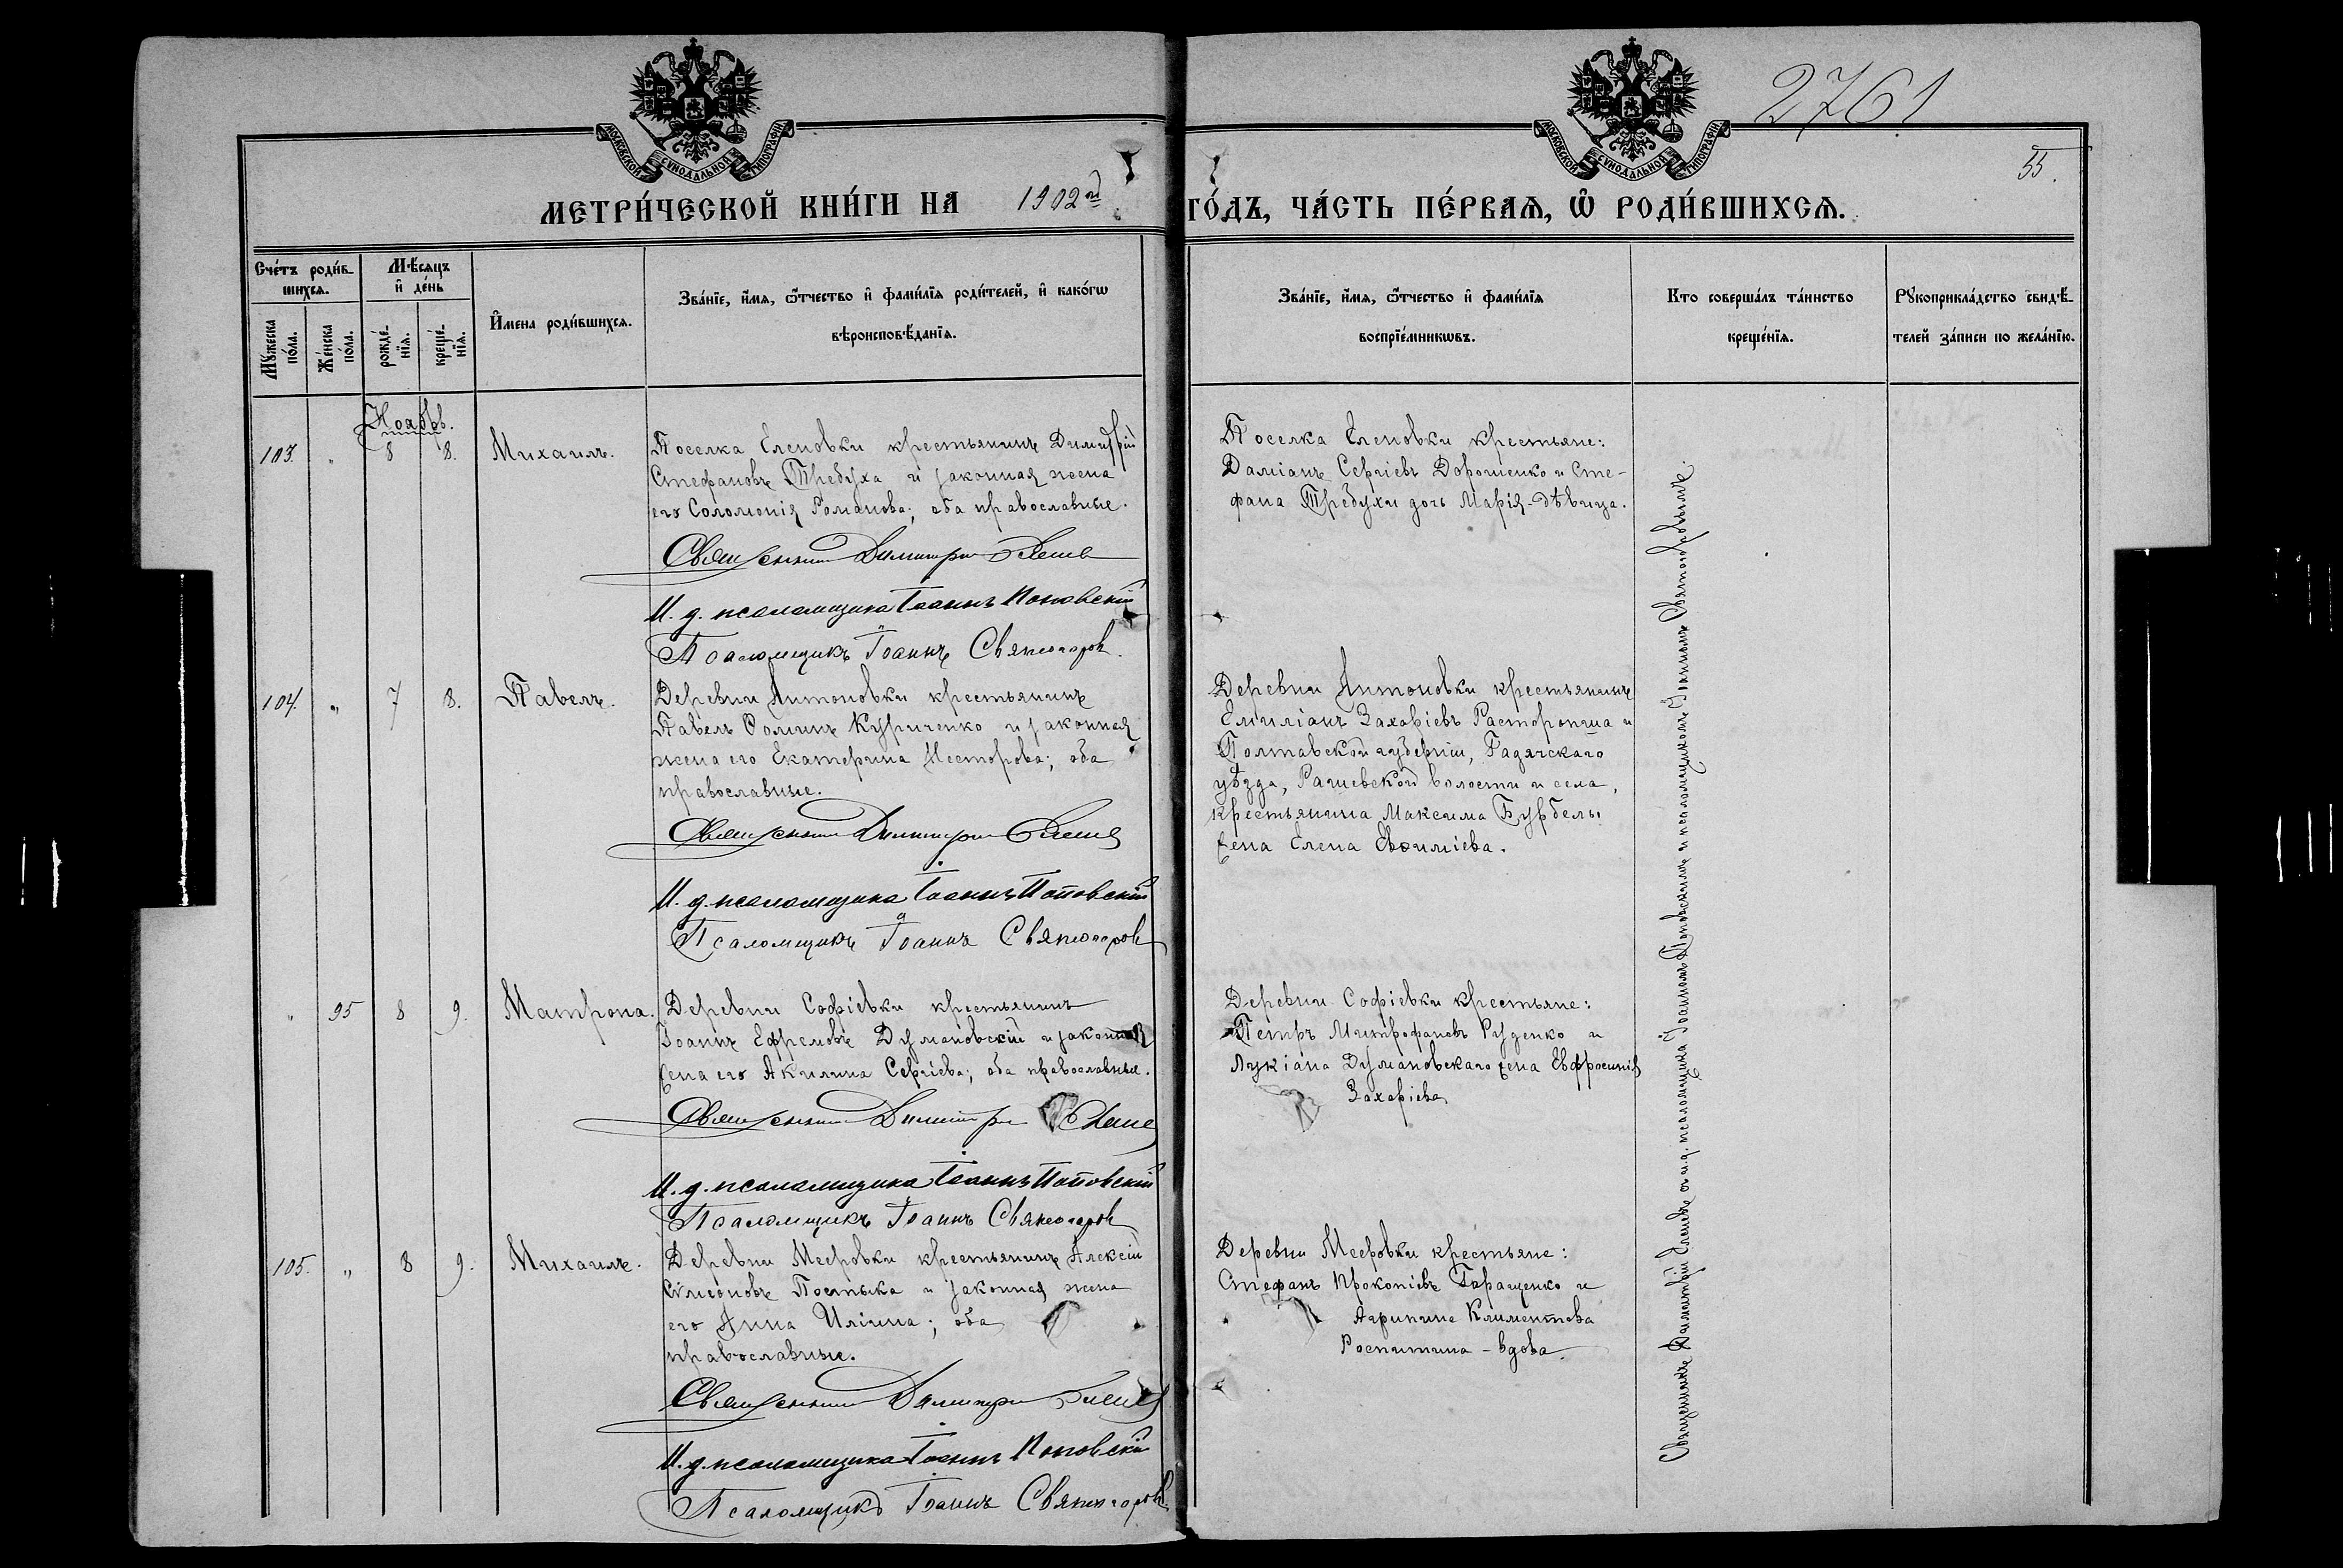 МОСКОВСКОЙ СѴНОДАЛЬНОЙ ТИПОГРАФІИ
МОСКОВСКОЙ СѴНОДАЛЬНОЙ ТИПОГРАФІИ
2761
55.
МЕТРИ́ЧЕСКОЙ КНИ́ГИ НА 1902й ГО́ДЪ, ЧА́СТЬ ПЕ́РВАѦ, Ѡ РОДИ́ВШИХСѦ.
Сче́тъ роди́в-
шихсѧ.
Мꙋ́жеска
по́ла.
Же́нска
по́ла.
Мѣ́сѧцъ
и҆ де́нь
рожде́-
нїѧ.
креще́-
нїѧ.
И҆мена роди́вшихсѧ.
Зва́нїе, и҆́мѧ, ѻ҆́тчество и҆ фами́лїѧ роди́телей, и҆ како́гѡ
вѣроисповѣ́данїѧ.
Зва́нїе, и҆́мѧ, ѻ҆́тчество и҆ фами́лїѧ
воспрїе́мникѡвъ.
Кто соверша́лъ та́инство
креще́нїѧ.
Рꙋкоприкла́дство свидѣ́-
телей за́писи по жела́нїю.
Ноябрь.
103. " 8 8. Михаилъ.
Поселка Еленовки крестьянинъ Димитрій
Стефановъ Требуха и законная жена
его Соломонія Романова; оба православные.
Священникъ Димитрій
И. д. псаломщика Іоаннъ Поповскій
Псаломщикъ Іоаннъ Святогоровъ
Поселка Еленовки крестьяне:
Даміанъ Сергіевъ Дорошенко и Сте-
фана Требухи дочь Марія-дѣвица.
104. " 7 8. Павелъ.
Деревни Антоновки крестьянинъ
Павелъ Ѳоминъ Куриченко и законная
жена его Екатерина Несторова; оба
православные.
Священникъ Димитрій
И. д. псаломщика Іоаннъ Поповскій
Псаломщикъ Іоаннъ Святогоровъ
Деревни Антоновки крестьянинъ
Емиліанъ Захаріевъ Расторопша и
Полтавской губерніи, Гадячскаго
уѣзда, Рашевской волости и села,
крестьянина Максима Бурбелы
жена Елена Евѳиміева.
" 95 8 9. Матрона.
Деревни Софіевки крестьянинъ
Іоаннъ Ефремовъ Думановскій и законная
жена его Акилина Сергіева; оба православные.
Священникъ Димитрій
И. д. псаломщика Іоаннъ Поповскій
Псаломщикъ Іоаннъ Святогоровъ
Деревни Софіевки крестьяне:
Петръ Митрофановъ Руденко и
Лукіана Думановскаго жена Евфросинія
Захаріева
105. " 8 9. Михаилъ.
Деревни Мееровки крестьянинъ Алексій
Сѵмеоновъ Постыка и законная жена
его Анна Иліина; оба
православные.
Священникъ Димитрій
И. д. псаломщика Іоаннъ Поповскій
Псаломщикъ Іоаннъ Святогоровъ
Деревни Мееровки крестьяне:
Стефанъ Прокопіевъ Геращенко и
Агрипина Климентова
Роспитина - вдова.
Священникъ Димитрій съ и. д. псаломщика Іоанномъ Поповскимъ и псаломщикомъ Іоанномъ Святогоровымъ.